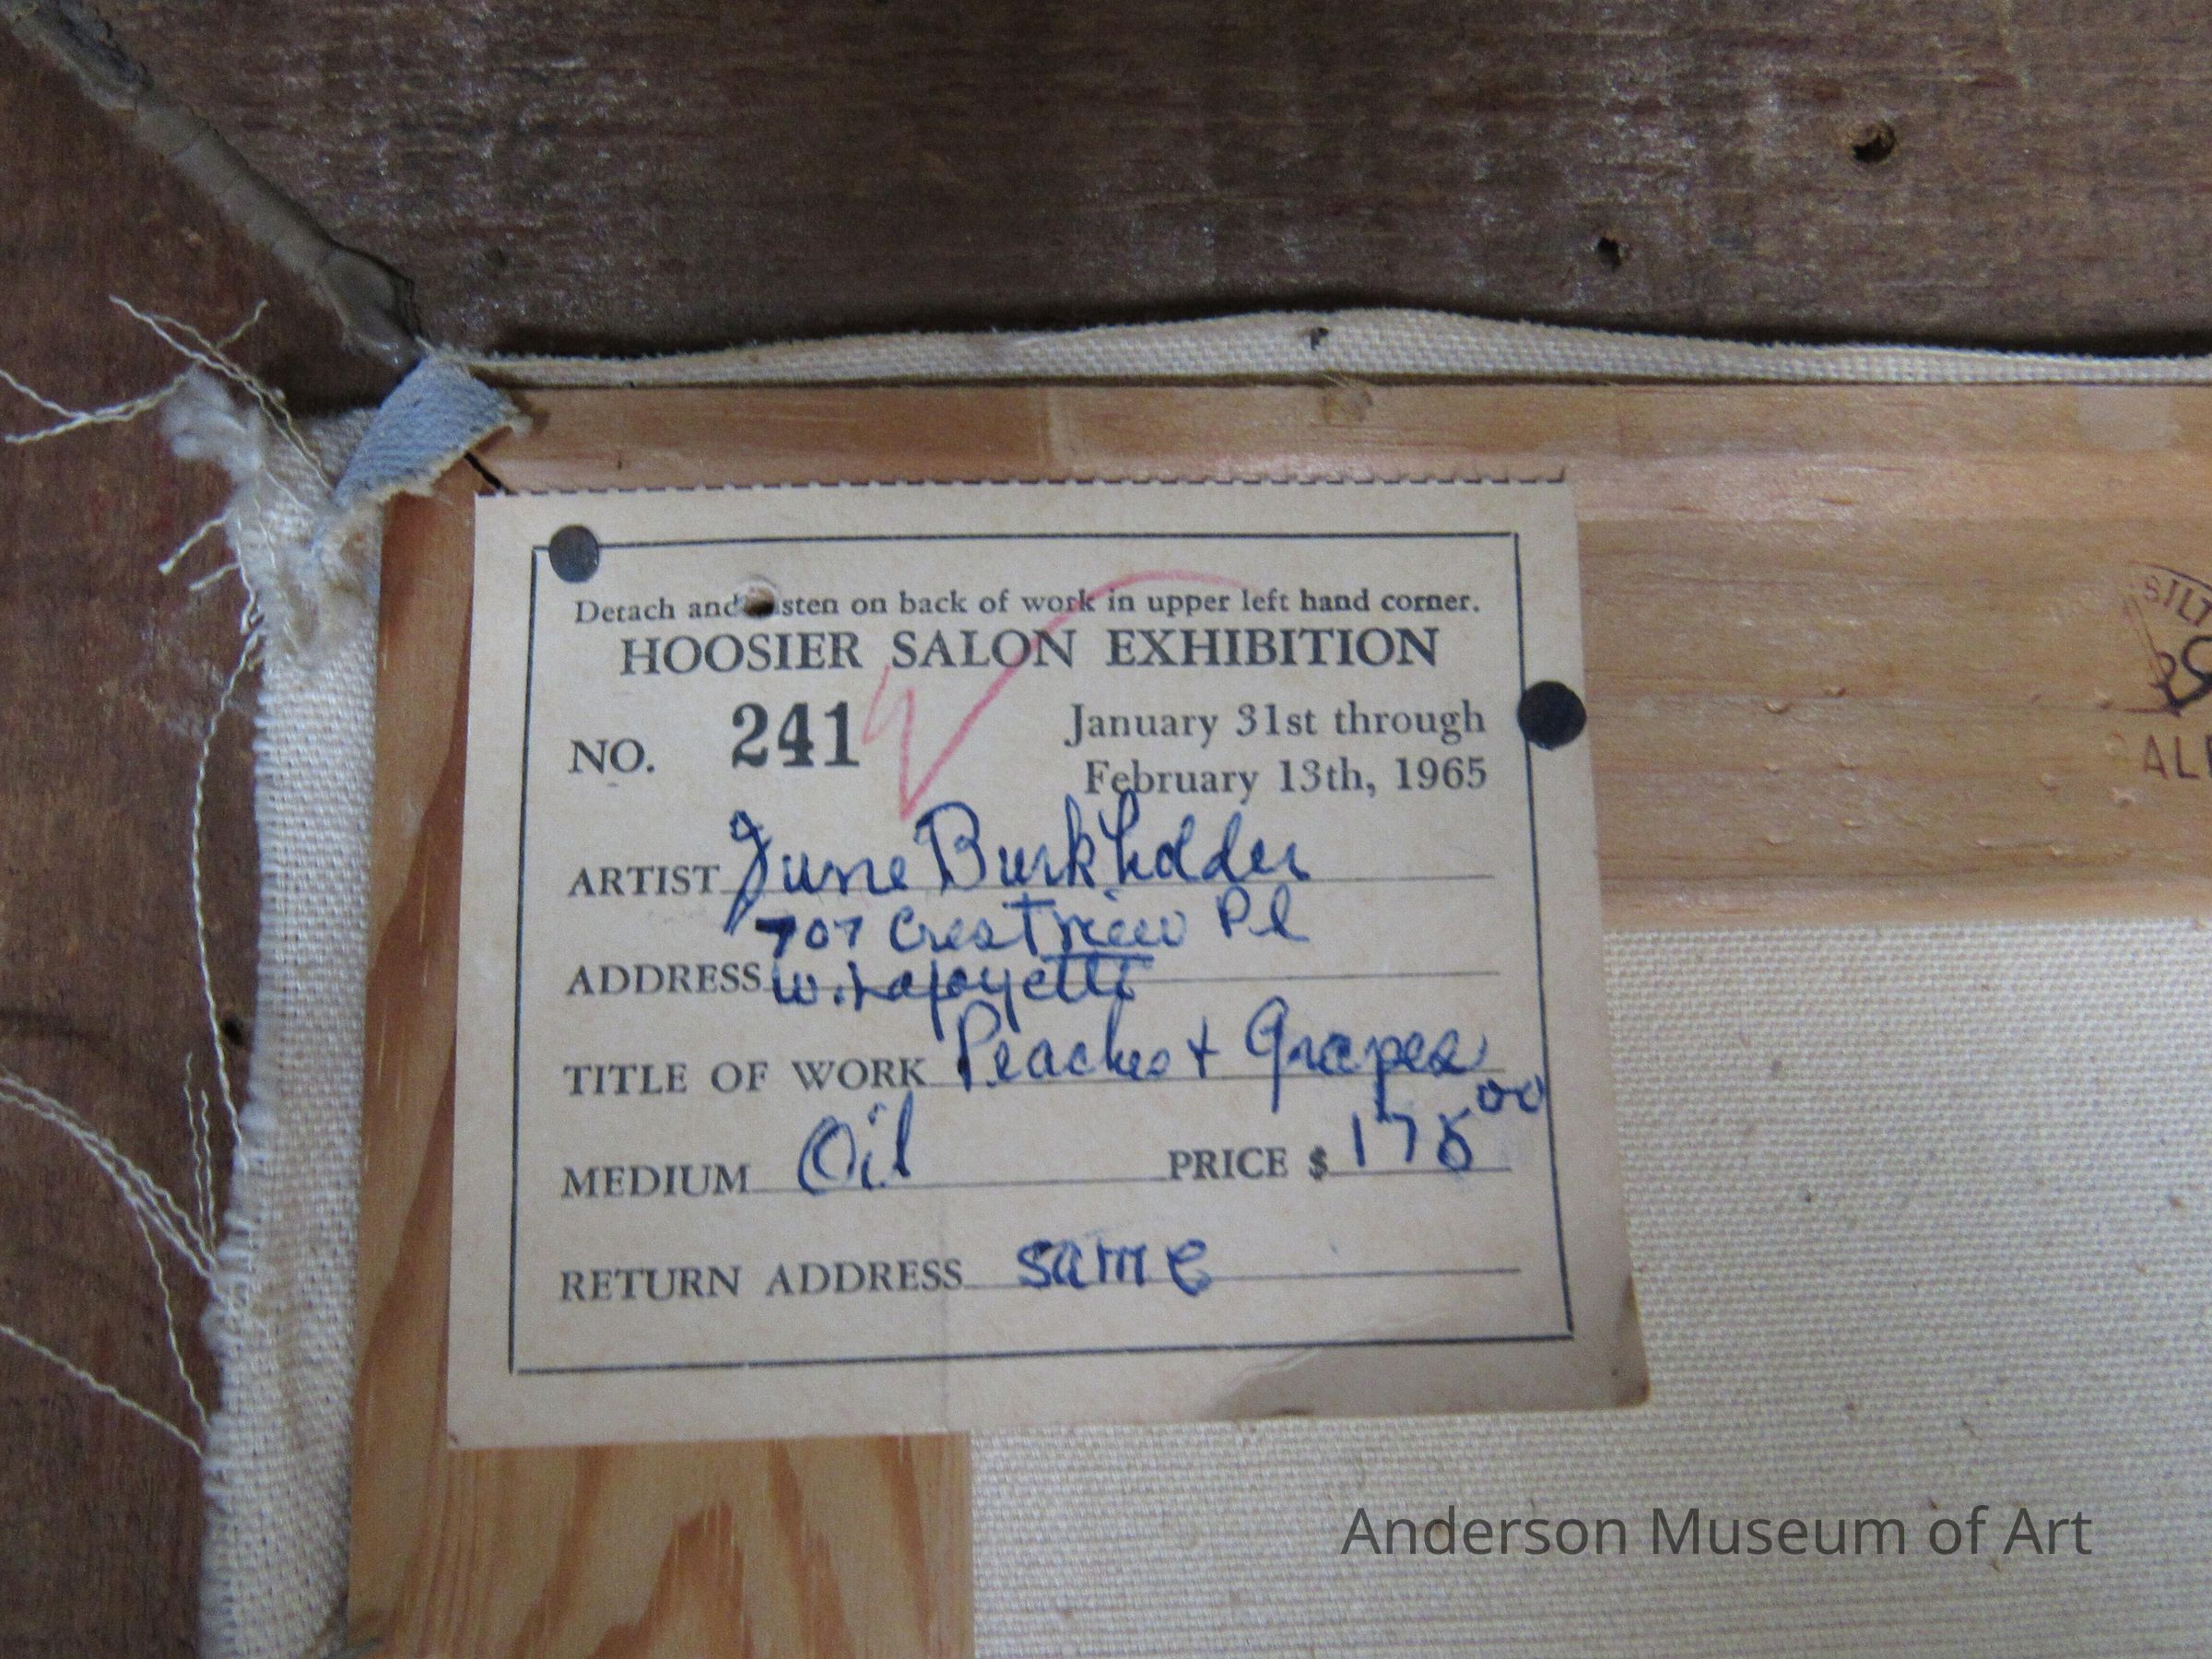 Detach and sten on back of work in upper left hand corner.
HOOSIER SALON EXHIBITION
NO. 241
January 31st through
February 13th, 1965
ARTIST June Burkholder
707 Crestview Pl
ADDRESS W. Lafayette
TITLE OF WORK Peaches + Grapes
MEDIUM Oil PRICE $ 175 00
RETURN ADDRESS same
Anderson Museum of Art